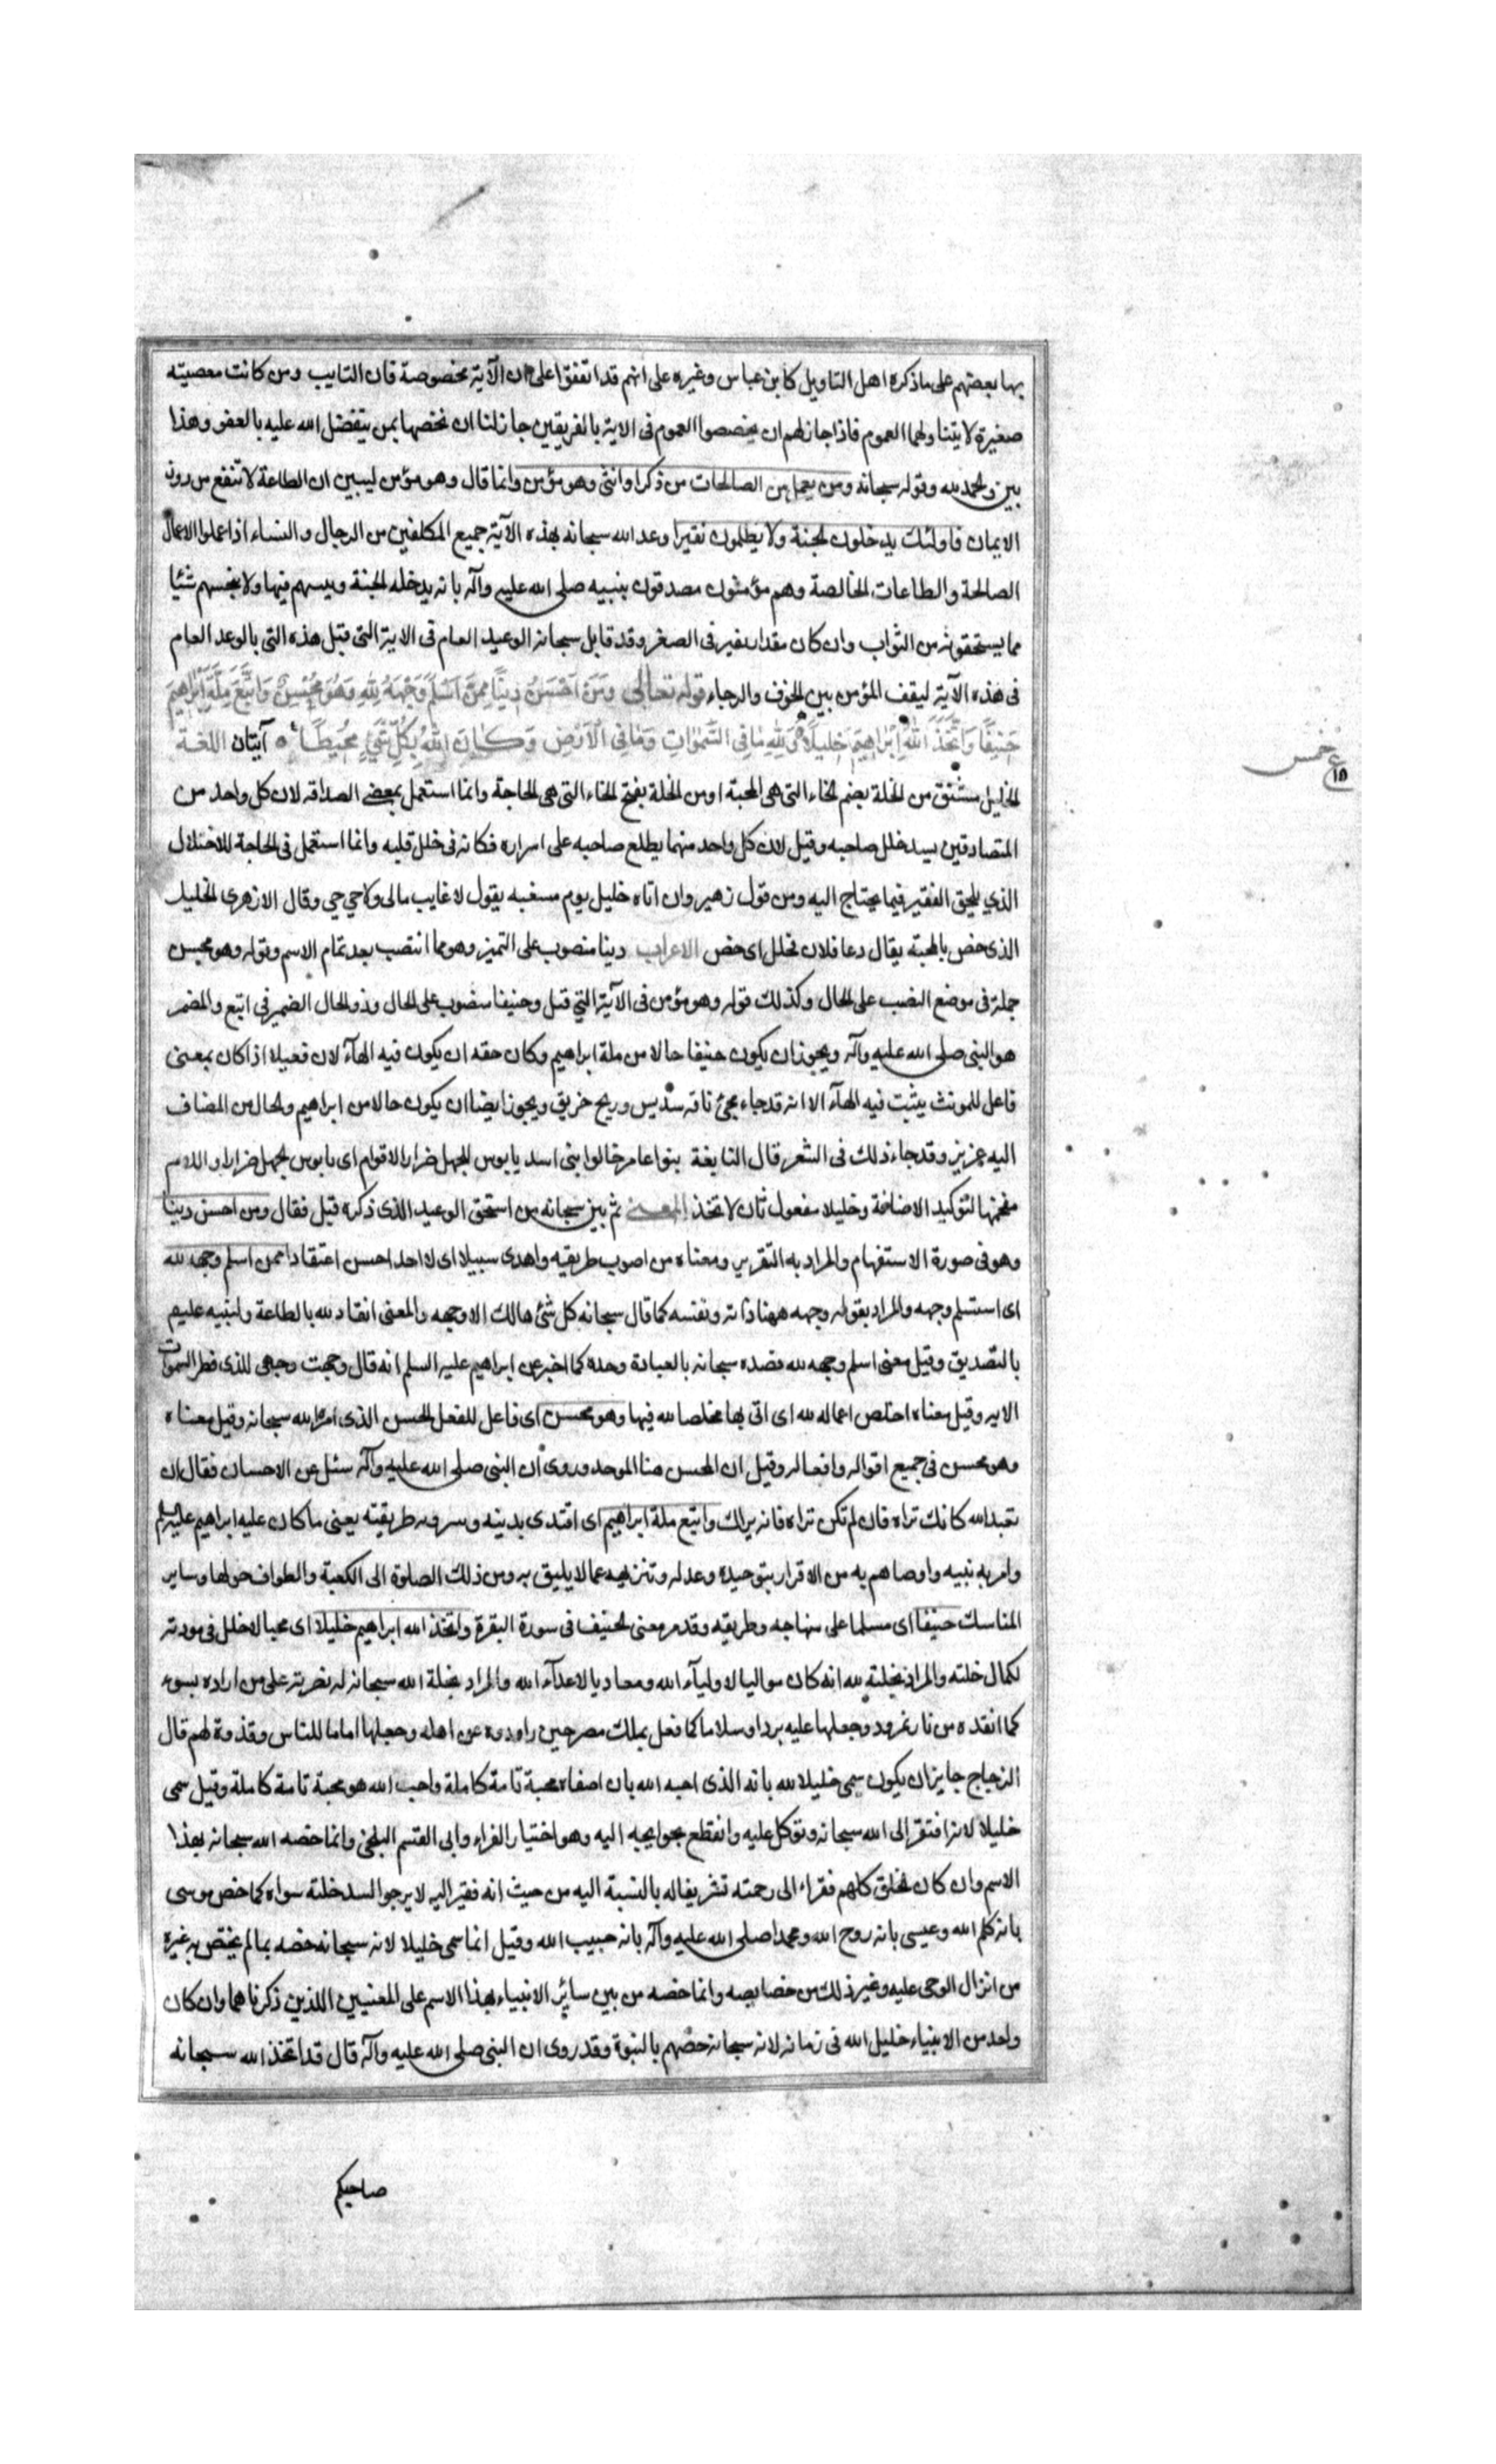 بها بعضهم على ما ذكره اهل التاويل كابن عباس وغيره على انهم قد اتفقوا على ان الآية مخصوصة فان التايب ومن كانت معصيته
صغيرة لا يتناولهما العموم فاذا جاز لهم ان يخصصوا العموم فى الاية بالفريقين جاز لنا ان نخصها بمن يتفضل الله عليه بالعفو وهذا
بين والحمد لله وقوله سبحانه ومن يعمل من الصالحات من ذكر او انثى وهو مؤمن وانما قال وهو مؤمن ليبين ان الطاعة لا تنفع من دون
الايمان فاولئك يدخلون الجنة ولا يظلمون نقيرا وعد الله سبحانه بهذه الآية جميع المكلفين من الرجال والنساء اذا عملوا الاعمال
الصالحة والطاعات الخالصة وهم مؤمنون مصدقون بنبيه صلى الله عليه وآله بانه يدخله الجنة ويسهم فيها ولا يبخسهم شيئا
مما يستحقونه من الثواب وان كان مقدار نقير فى الصغر وقد قابل سبحانه الوعيد العام فى الاية التى قبل هذه التى بالوعد العام
فى هذه الآية ليقف المؤمن بين الخوف والرجاء قوله تعالى وَمَنْ اَحْسَنُ دِينًا مِمَّنْ اَسْلَمَ وَجْهَهُ لِلّٰهِ وَهُوَ مُحْسِنٌ وَاتَّبَعَ مِلَّةَ اِبْرٰاهِيمَ
حَنِيفًا وَاتَّخَذَ اللّٰهُ اِبْرٰاهِيمَ خَلِيلًا وَلِلّٰهِ مٰا فِى السَّمٰوٰاتِ وَمٰا فِى الْاَرْضِ وَكٰانَ اللّٰهُ بِكُلِّ شَيْءٍ مُحِيطًا آيتان اللغة
الخليل مشتق من الخلة بضم الخاء التى هى المحبة او من الخلة بفتح الخاء التى هى الحاجة وانما استعمل بمعنى الصداقه لان كل واحد من
المتصادقين يسد خلل صاحبه وقيل لان كل واحد منهما يطلع صاحبه على اسراره فكانه فى خلل قلبه وانما استعمل فى الحاجة للاختلال
الذي يلحق الفقير فيما يحتاج اليه ومن قول زهير وان اتاه خليل يوم مسغبه يقول لا غايب مالى ولا وقال الازهرى الخليل
الذى خص بالمحبته يقال دعا فلان فخلل اى خص الاعراب دينا منصوب على التميز وهو مما انتصب بعد تمام الاسم وقوله وهو محسن
جملة فى موضع النصب على الحال وكذلك قوله وهو مؤمن فى الآية التي قبل وحنيفا منصوب على الحال وذو الحال الضمير فى اتبع والمضمر
هو النبى صلى الله عليه وآله ويجوز ان يكون حنيفا حالا من ملة ابراهيم وكان حقه ان يكون فيه الهآء لان فعيلا اذا كان بمعنى
فاعل للمونث يثبت فيه الهآء الا انه قد جاء مجئ ناقه سديس وريح خريق ويجوز ايضا ان يكون حالا من ابراهيم والحال من المضاف
اليه عزيز وقد جاء ذلك فى الشعر قال النابغة بنوا عامر خالوا بنى اسد يا بوس للجهل ضرارا لاقوام اى يا بوس لجهل ضرارا واللام
مقحمة لتوكيد الاضافة وخليلا مفعول ثان لاتخذ المعنى ثم بين سبحانه من استحق الوعيد الذى ذكره قبل فقال ومن احسن دينا
وهو فى صورة الاستفهام والمراد به التقرير ومعناه من اصوب طريقه واهدى سبيلا اى لا احد احسن اعتقادا ممن اسلم وجهه لله
اى استسلم وجهه والمراد بقوله وجهه ههنا ذاته ونفسه كما قال سبحانه كل شئ هالك الا وجهه والمعنى انقاد لله بالطاعة ولنبيه عليهم
بالتصديق وقيل معنى اسلم وجهه لله قصده سبحانه بالعبادة وحده كما اخبر عن ابراهيم عليه السلم انه قال وجهت وجهى للذى فطر السموات
الايه وقيل معناه اخلص اعماله لله اى اتى بها مخلصا لله فيها وهو محسن اى فاعل للفعل الحسن الذى امره الله سبحانه وقيل معناه
وهو محسن فى جميع اقواله وافعاله وقيل ان المحسن هنا الموحد وروى ان النبى صلى الله عليه وآله سئل عن الاحسان فقال ان
تعبد الله كانك تراه فان لم تكن تراه فانه يراك واتبع ملة ابراهيم اى اقتدى بدينه وبطريقته يعنى ما كان عليه ابراهيم عليه السلم
وامر به نبيه واوصاهم به من الاقرار بتوحيده وعدله وتنزيهه عما لا يليق به ومن ذلك الصلوة الى الكعبة والطواف حولها وساير
المناسك حنيفا اى مسلما على منهاجه وطريقه وقد مر معنى الحنيف فى سورة البقرة واتخذ الله ابراهيم خليلا اى محبا لا خلل فى مودته
لكمال خلته والمراد بخلته لله انه كان مواليا لاوليآء الله ومعاديا لاعدآء الله والمراد بخلة الله سبحانه له نصرته على من اراده بسوء
كما انقذه من نار نمرود وجعلها عليه بردا وسلاما كما فعل بملك مصر حين راوده عن اهله وجعلها اماما للناس وقذوة لهم قال
الزجاج جايز ان يكون سمى خليلا لله بانه الذى احبه الله بان اصفاه محبة تامة كاملة واحب الله هو محبة تامة كاملة وقيل سمى
خليلا لانه افتقر إلى الله سبحانه وتوكل عليه وانقطع بحوايجه اليه وهو اختيار الفراء وابى القسم البلخى وانما خصه الله سبحانه بهذا
الاسم وان كان الخلق كلهم فقراء الى رحمته تشريفا له بالنسبة اليه من حيث انه فقير اليه لا يرجو لسد خلته سواه كما خص موسى
بانه كلم الله وعيسى بانه روح الله ومحمدا صلى الله عليه وآله بانه حبيب الله وقيل انما سمى خليلا لانه سبحانه خصه بما لم يختص به غيره
من انزال الوحى عليه وغير ذلك من خصايصه وانما خصه من بين سائر الانبياء بهذا الاسم على المعنيين اللذين ذكرناهما وان كان
واحد من الانبياء خليل الله فى زمانه لانه سبحانه خصهم بالنبوة وقد روى ان النبى صلى الله عليه وآله قال قد اتخذ الله سبحانه
صاحبكم
خمس